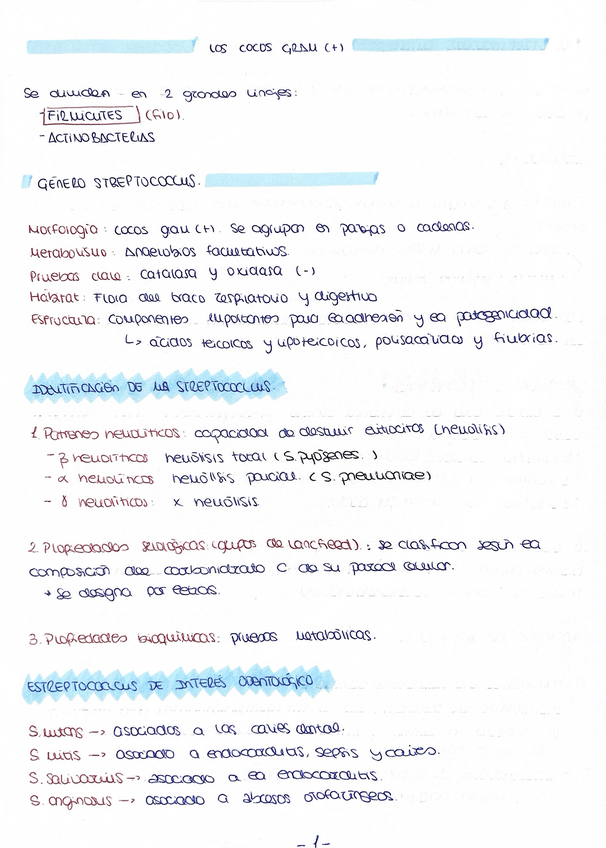 LOS COCOS GRAM (+)
Se dividen en 2 grandes linajes:
- FIRMICUTES (filo).
- ACTINOBACTERIAS
GÉNERO STREPTOCOCCUS.
Morfología: cocos gram (+). Se agrupan en parejas o cadenas.
Metabolismo: Anaerobios facultativos.
Pruebas clave: catalasa y oxidasa (-)
Hábitat: Flora del traco respiratorio y digestivo
Estructura: componentes importantes para la adhesión y la patogenicidad.
↳ ácidos teicoicos y lipoteicoicos, polisacáridos y fimbrias.
IDENTIFICACIÓN DE LA STREPTOCOCCUS.
1. Patrones hemolíticos: capacidad de destruir eritrocitos (hemólisis)
- β hemolíticos hemólisis total (S. pyogenes.)
- α hemolíticos hemólisis parcial. (S. pneumoniae)
- γ hemolíticos: x hemólisis
2. Propiedades serológicas: (grupos de Lancfield).: se clasifican según la
composición del carbohidrato C de su pared celular.
→ Se designa por letras.
3. Propiedades bioquímicas: pruebas metabólicas.
ESTREPTOCOCCUS DE INTERÉS ODONTOLÓGICO.
S. mutans -> asociados a las caries dental.
S. mitis -> asociado a endocarditis, sepsis y caries.
S. salivarius -> asociado a la endocarditis.
S. anginosus -> asociado a abscesos orofaríngeos.
- 1 -